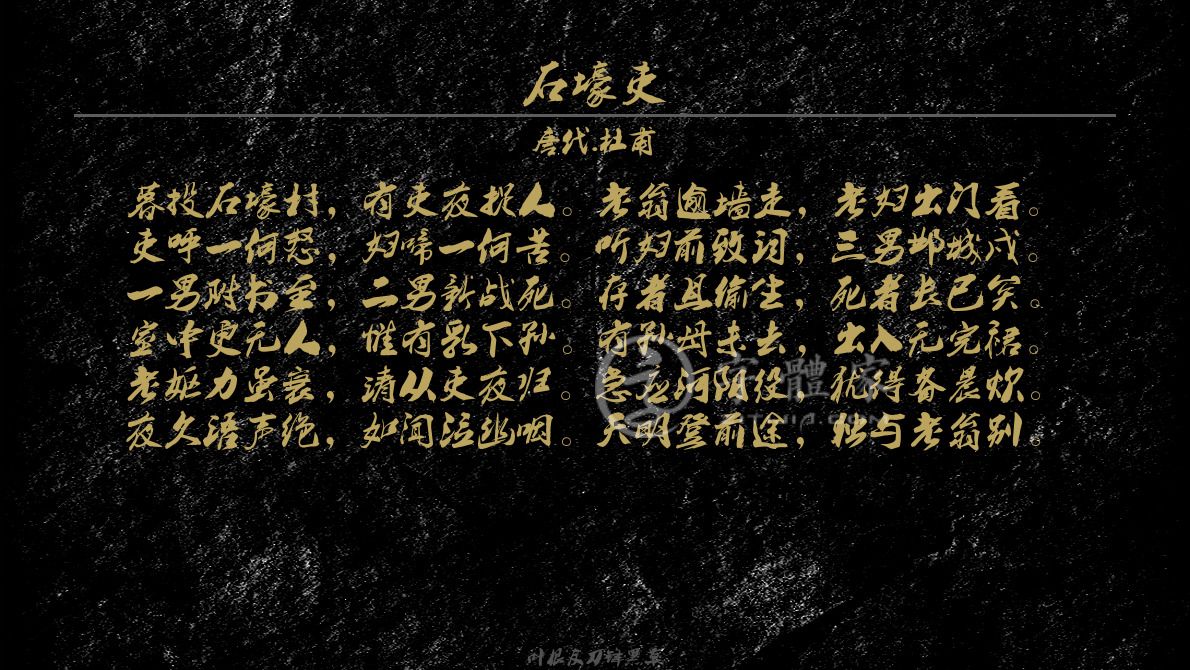 石壕吏
唐代:杜甫
暮投石壕村，有吏夜捉人。老翁逾墙走，老妇出门看。
吏呼一何怒，妇啼一何苦。听妇前致词，三男邺城戍。
一男附书至，二男新战死。存者且偷生，死者长已矣。
室中更无人，惟有乳下孙。有孙母未去，出入无完裙。
老妪力虽衰，请从吏夜归。急应河阳役，犹得备晨炊。
夜久语声绝，如闻泣幽咽。天明登前途，独与老翁别。
字體家
叶根友刀锋黑草